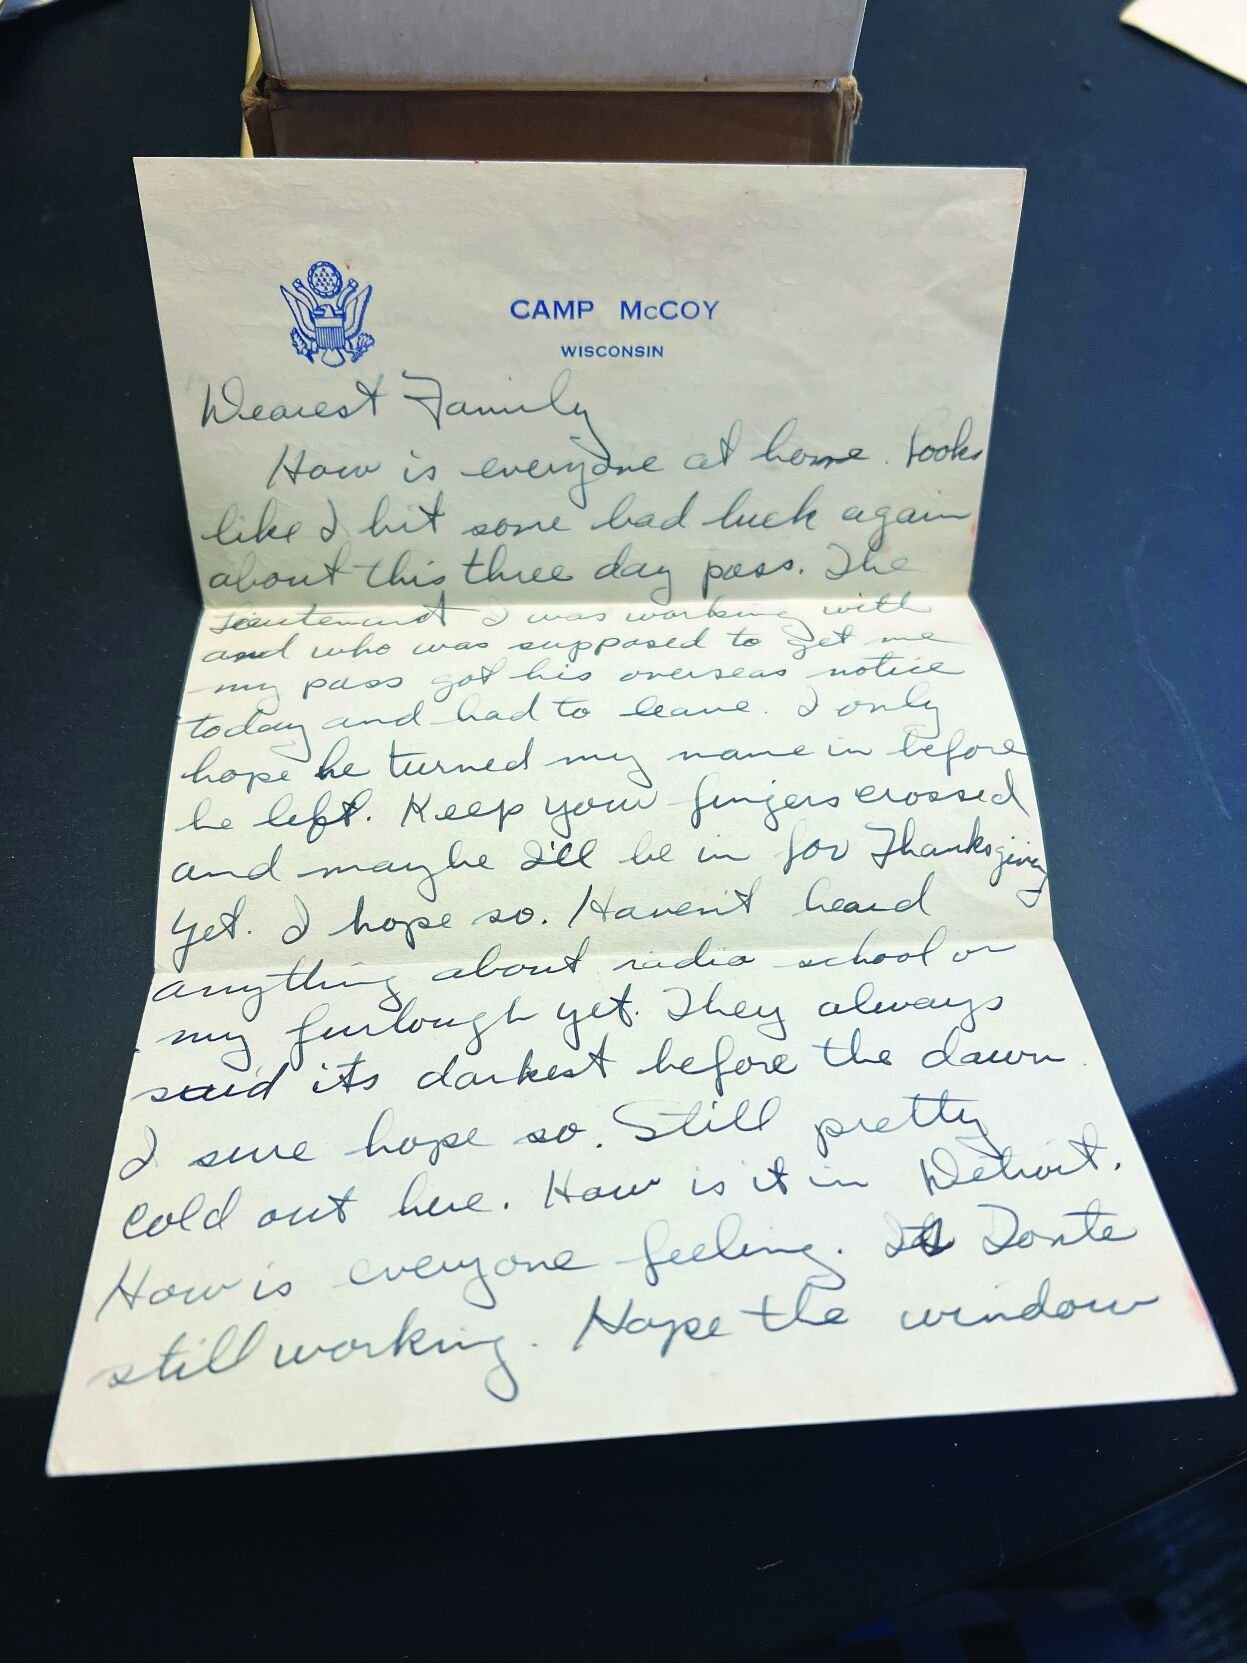 CAMP McCOY
WISCONSIN
Dearest Family
How is everyone at home. Looks
like I hit some bad luck again
about this three day pass. The
Lieutenant I was working with
and who was supposed to get me
my pass got his overseas notice
today and had to leave. I only
hope he turned my name in before
he left. Keep your fingers crossed
and maybe I'll be in for Thanksgiving
yet. I hope so. Haven't heard
anything about radio school or
my furlough yet. They always
said its darkest before the dawn
I sure hope so. Still pretty
cold out here. How is it in Detroit.
How is everyone feeling. Is Dante
still working. Hope the window